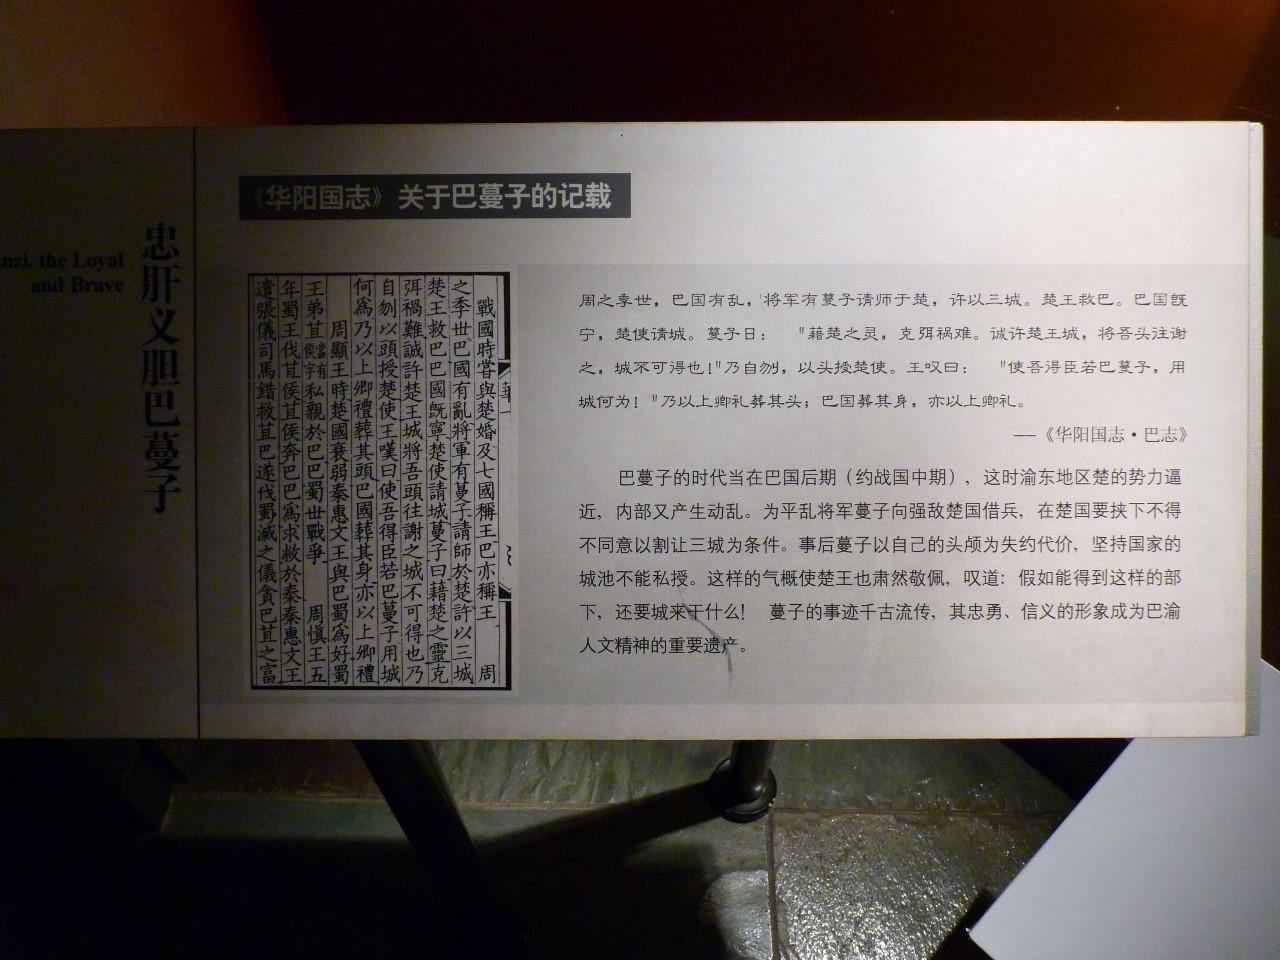 忠肝义胆巴蔓子
nzi, the Loyal
and Brave
《华阳国志》关于巴蔓子的记载
戰國時嘗與楚婚及七國稱王巴亦稱王 周
之季世巴國有亂將軍有蔓子請師於楚許以三城
楚王救巴巴國既寧楚使請城蔓子曰藉楚之靈克
弭禍難誠許楚王城將吾頭往謝之城不可得也乃
自刎以頭授楚使王嘆曰使吾得臣若巴蔓子用城
何爲乃以上卿禮葬其頭巴國葬其身亦以上卿禮
周顯王時楚國衰弱秦惠文王與巴蜀爲好蜀
王弟苴當有侯字私親於巴巴蜀世戰爭 周慎王五
年蜀王伐苴侯苴侯奔巴巴爲求救於秦秦惠文王
遣張儀司馬錯救苴巴遂伐蜀滅之儀貪巴苴之富
周之季世，巴国有乱，将军有蔓子请师于楚，许以三城。楚王救巴。巴国既
宁，楚使请城。蔓子曰： "藉楚之灵，克弭祸难。诚许楚王城，将吾头往谢
之，城不可得也！"乃自刎，以头授楚使。王叹曰： "使吾得臣若巴蔓子，用
城何为！"乃以上卿礼葬其头；巴国葬其身，亦以上卿礼。
——《华阳国志·巴志》
巴蔓子的时代当在巴国后期（约战国中期），这时渝东地区楚的势力逼
近，内部又产生动乱。为平乱将军蔓子向强敌楚国借兵，在楚国要挟下不得
不同意以割让三城为条件。事后蔓子以自己的头颅为失约代价，坚持国家的
城池不能私授。这样的气概使楚王也肃然敬佩，叹道：假如能得到这样的部
下，还要城来干什么！ 蔓子的事迹千古流传，其忠勇、信义的形象成为巴渝
人文精神的重要遗产。